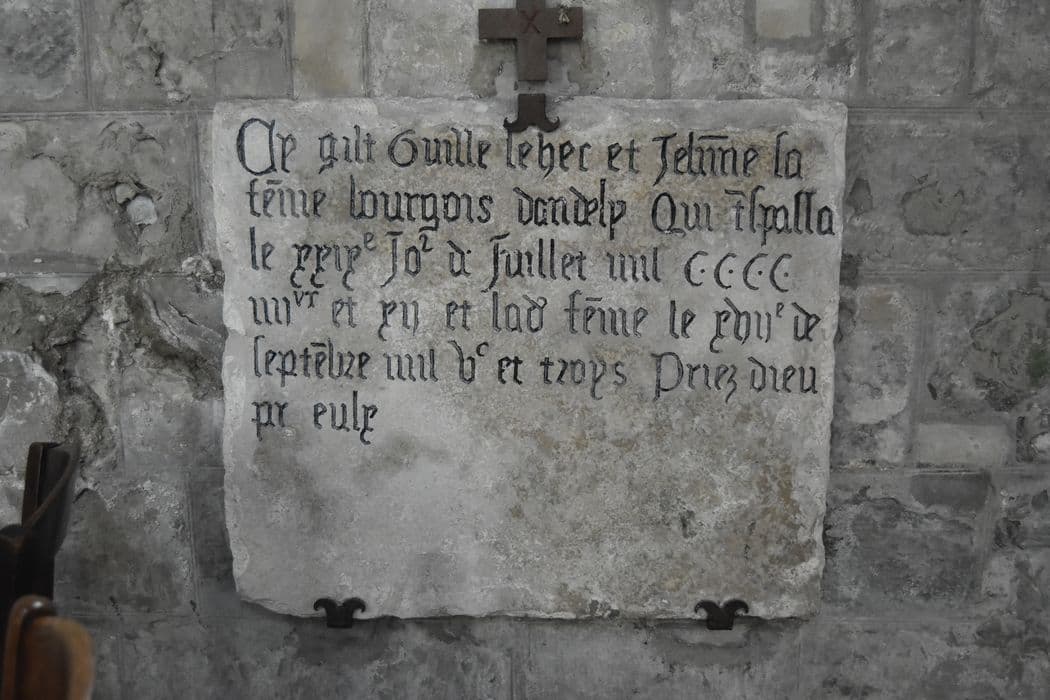 Cy gist Guille lehec et Jehāne sa
fēme bourgois dandely Qui t̄spassa
le xxixe Jor d Juillet mil C·C·C·C·
iiiivx et xij et lad fēme le xvije de
septēbre mil vc et troys Priez dieu
pr eulx
X